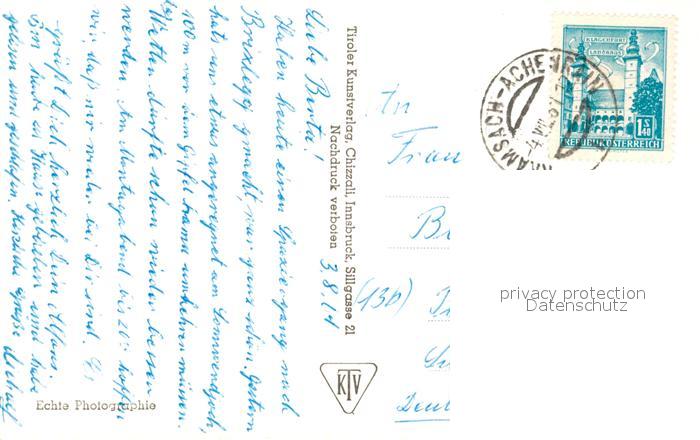 Liebe Berta!
Haben heute einen Spaziergang nach
Brixlegg gemacht, war ganz schön. Gestern
hat's etwas angeregnet am Sonnwendjoch,
100 m vor dem Gipfel umkehren müssen.
Wetter dürfte schon wieder besser
werden. Am Montagabend bis 20h hoffen
wir, daß wir wieder bei Dir sind. Es
grüßt Dich herzlich Dein Alfons.
Bin heute zu Hause geblieben und habe
gelesen und geschlafen. Herzliche Grüße
3.8.64
Tiroler Kunstverlag, Chizzali, Innsbruck, Sillgasse 21
Nachdruck verboten
Echte Photographie
KTV
An
Frau
(13b)
KLAGENFURT
LANDHAUS
1.S 40
REPUBLIK ÖSTERREICH
KRAMSACH-ACHENRAIN
privacy protection
Datenschutz